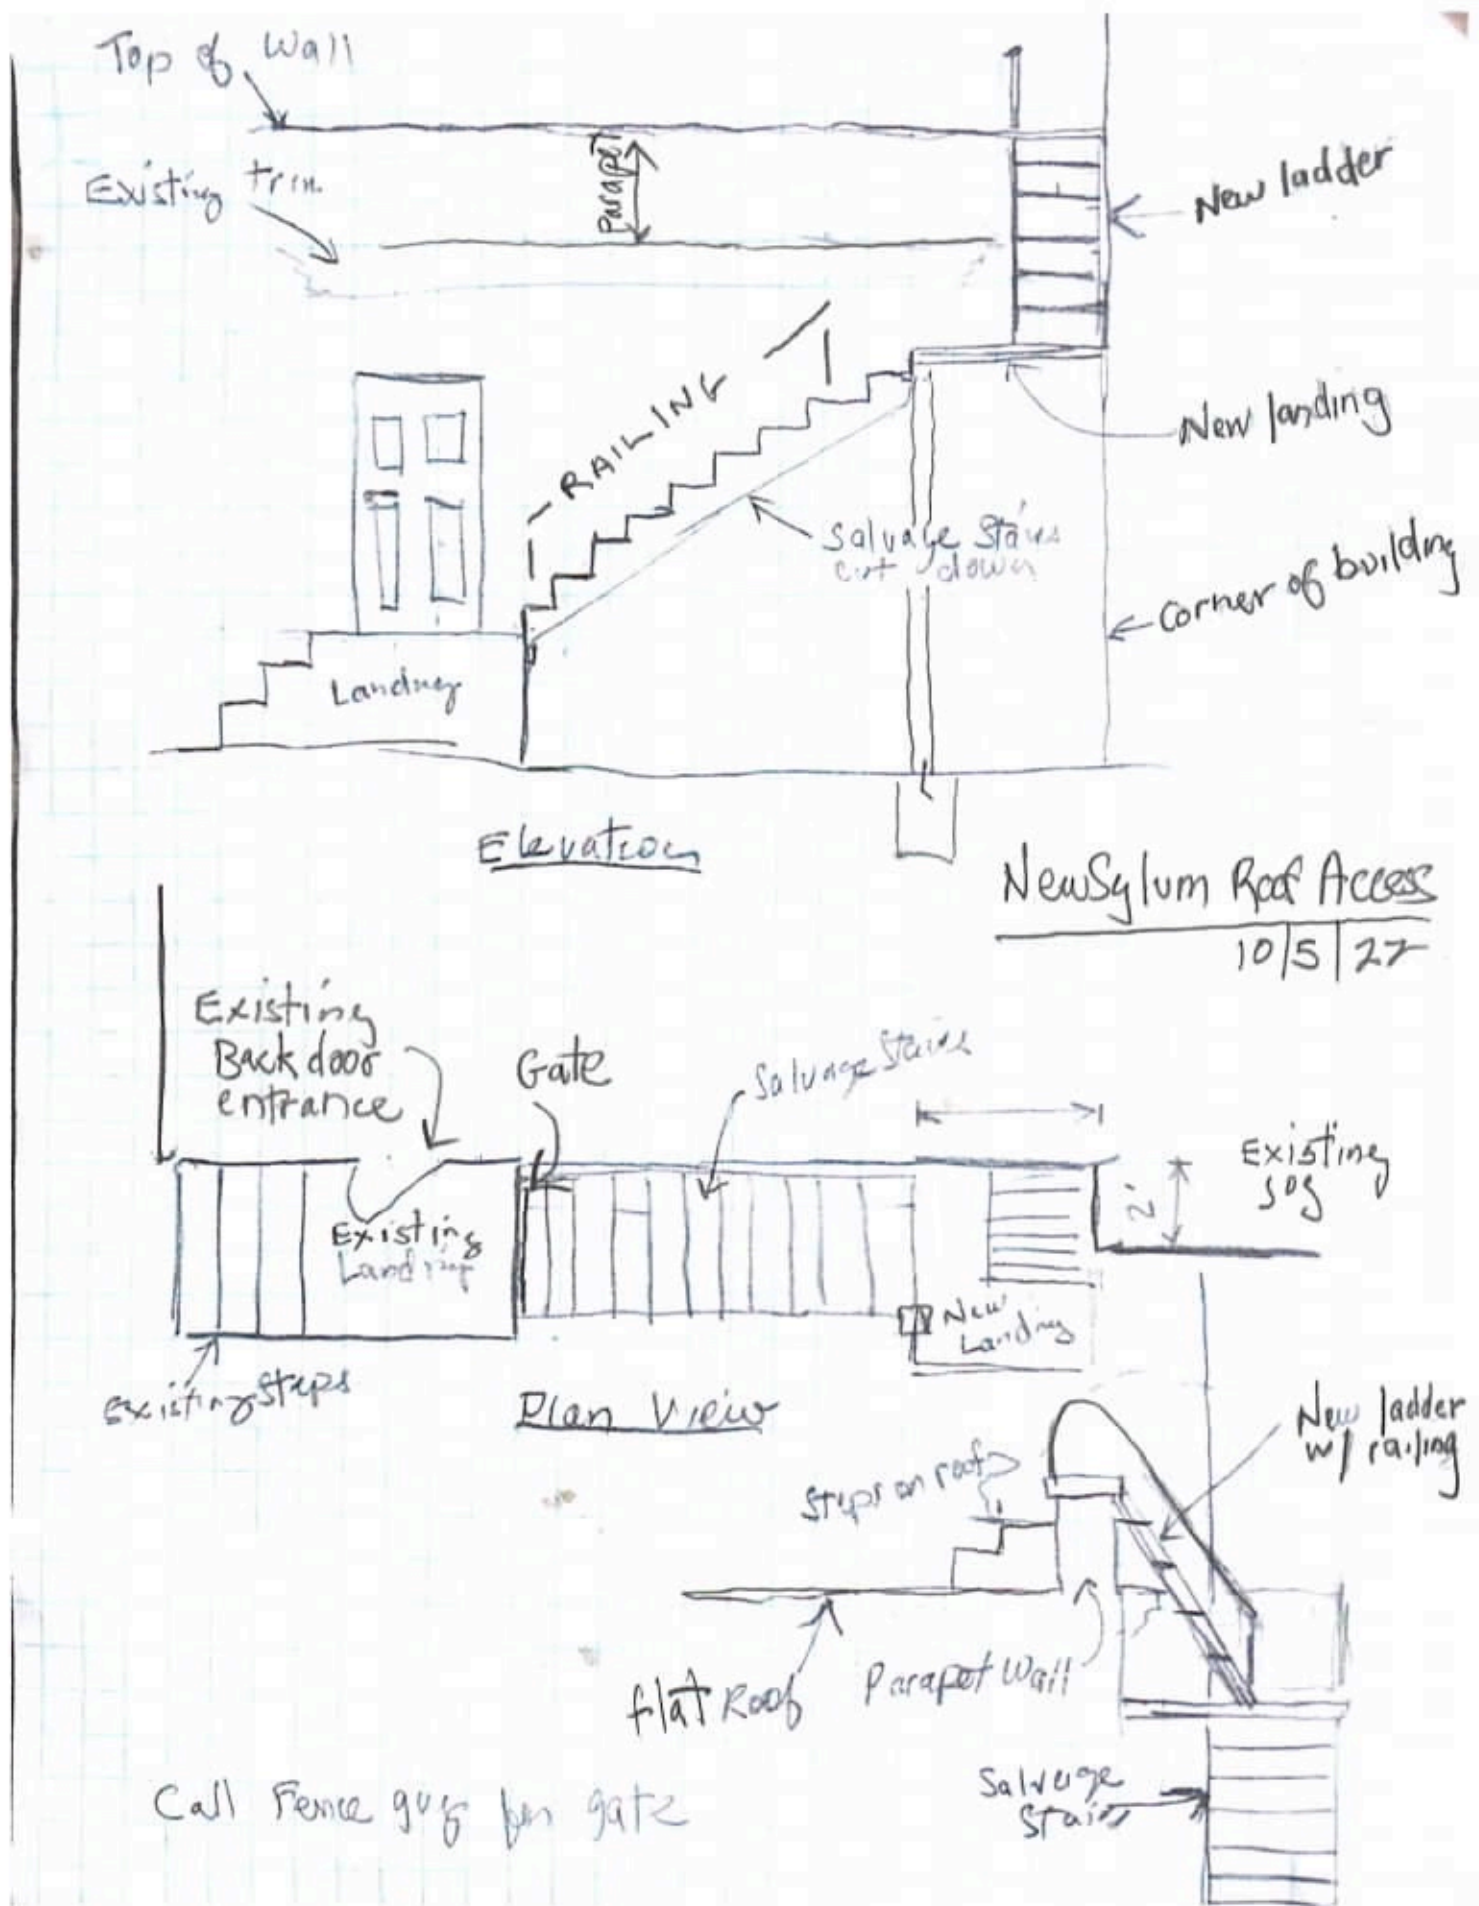 Top of Wall
Existing trim
Parapet
New ladder
RAILING
New landing
Salvage Stairs
cut down
Corner of building
Landing
Elevation
NewSylum Roof Access
10/5/22
Existing
Back door
entrance
Gate
Salvage Stairs
Existing
Jog
2'
Existing
Landing
New
Landing
Existing Steps
Plan View
New ladder
w/ railing
Steps on roof
Flat Roof
Parapet Wall
Salvage
Stairs
Call Fence guy for gate